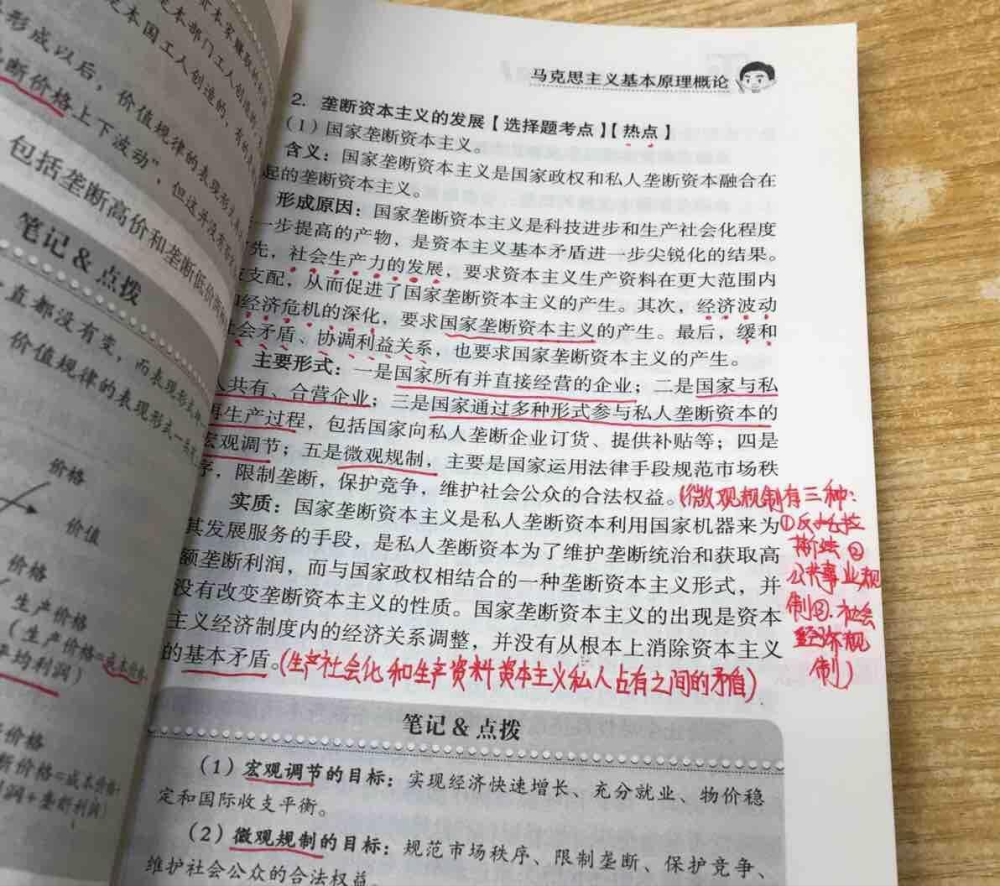 本家赚取的利润
本部门工人创造的
本国工人创造的，有的
形成以后，价值规律的表现形式
断价格上下波动”，但这并没有
包括垄断高价和垄断低价
笔记&点拨
直都没有变，而表现形式
价值规律的表现形式
价格
价值
价格
生产价格
（生产价格=成本价格
平均利润）
价格
断价格=成本价格+
利润+垄断利润）
马克思主义基本原理概论
2. 垄断资本主义的发展【选择题考点】【热点】
（1）国家垄断资本主义。
含义：国家垄断资本主义是国家政权和私人垄断资本融合在
起的垄断资本主义。
形成原因：国家垄断资本主义是科技进步和生产社会化程度
一步提高的产物，是资本主义基本矛盾进一步尖锐化的结果。
先，社会生产力的发展，要求资本主义生产资料在更大范围内
支配，从而促进了国家垄断资本主义的产生。其次，经济波动
经济危机的深化，要求国家垄断资本主义的产生。最后，缓和
会矛盾、协调利益关系，也要求国家垄断资本主义的产生。
主要形式：一是国家所有并直接经营的企业；二是国家与私
人共有、合营企业；三是国家通过多种形式参与私人垄断资本的
再生产过程，包括国家向私人垄断企业订货、提供补贴等；四是
宏观调节；五是微观规制，主要是国家运用法律手段规范市场秩
序，限制垄断，保护竞争，维护社会公众的合法权益。
（微观规制有三种：
①反托拉
斯法②
公共事业规
制③.社会
经济规
制）
实质：国家垄断资本主义是私人垄断资本利用国家机器来为
其发展服务的手段，是私人垄断资本为了维护垄断统治和获取高
额垄断利润，而与国家政权相结合的一种垄断资本主义形式，并
没有改变垄断资本主义的性质。国家垄断资本主义的出现是资本
主义经济制度内的经济关系调整，并没有从根本上消除资本主义
的基本矛盾。（生产社会化和生产资料资本主义私人占有之间的矛盾）
笔记&点拨
（1）宏观调节的目标：实现经济快速增长、充分就业、物价稳
定和国际收支平衡。
（2）微观规制的目标：规范市场秩序、限制垄断、保护竞争、
维护社会公众的合法权益。